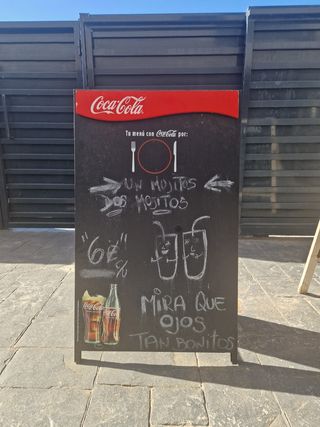 Coca-Cola
Tu menú con Coca-Cola por:
UN MOJITOS
DOS MOJITOS
"6€"
MIRA QUE
OJOS
TAN BONITOS
Coca-Cola
Coca-Cola